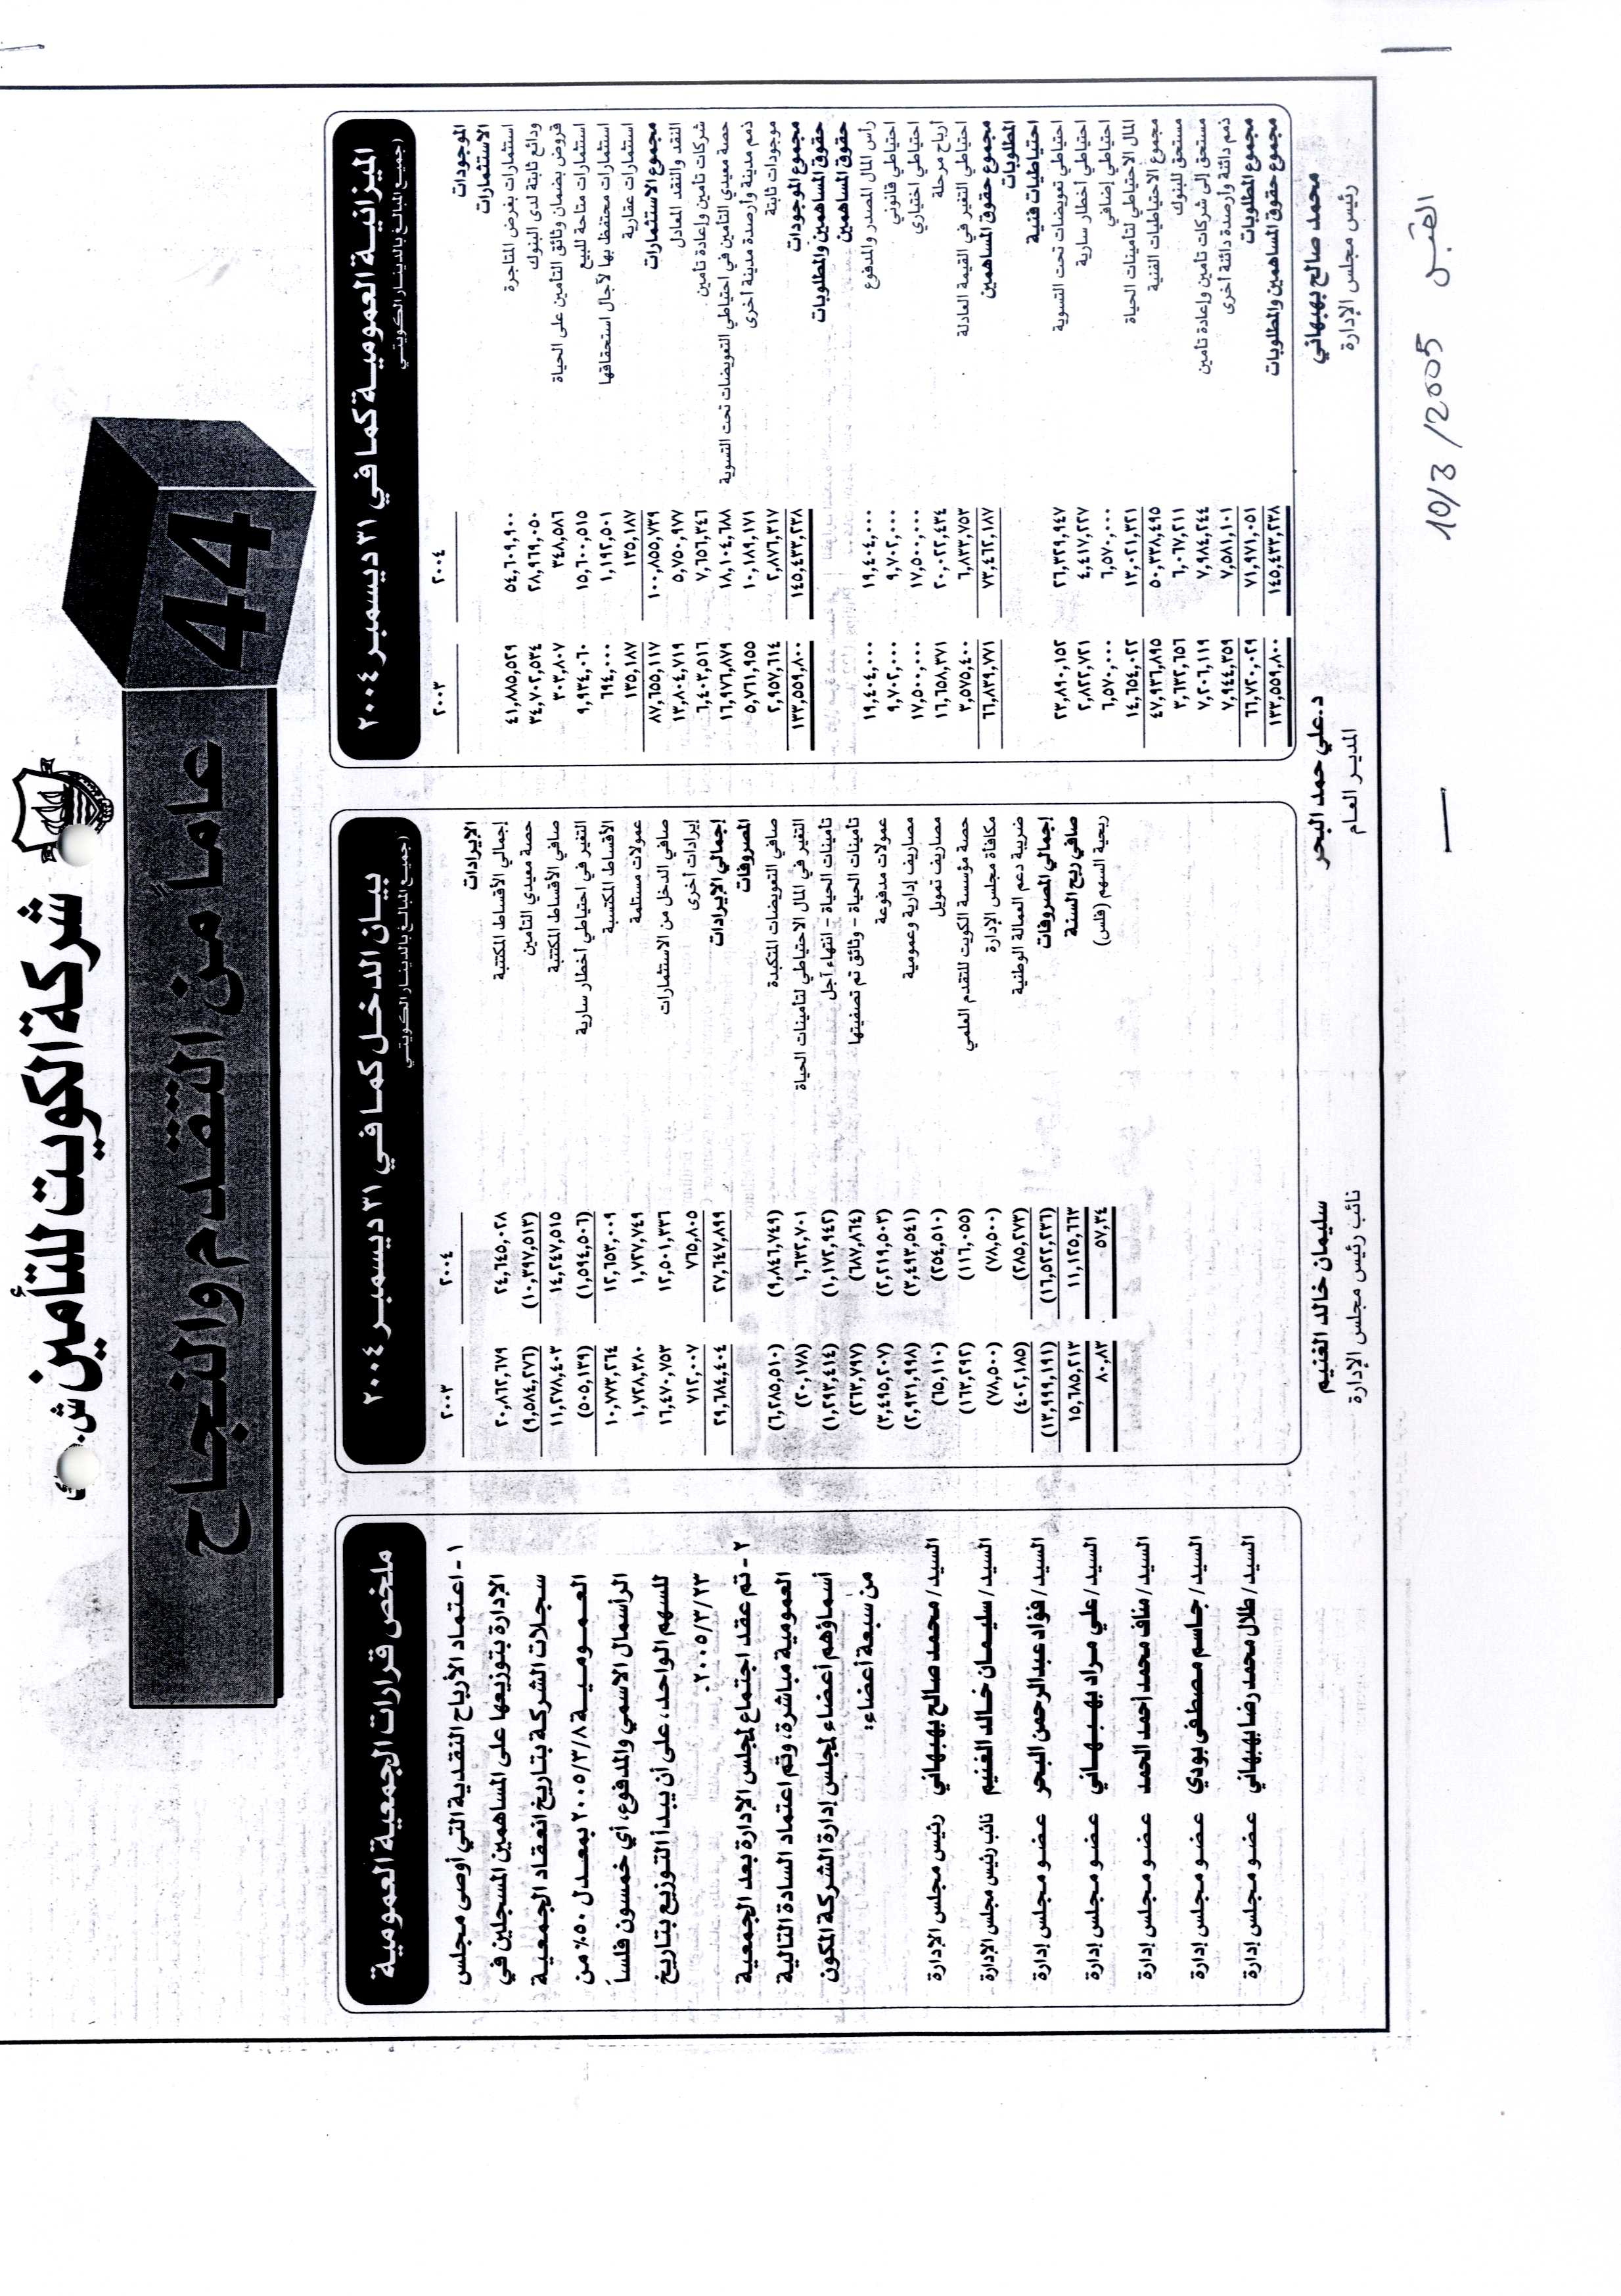 شركة الكويت للتأمين ش.
44
عاماً من التقدم والنجاح
الميزانية العمومية كما في ٣١ ديسمبر ٢٠٠٤
(جميع المبالغ بالدينار الكويتي)
٢٠٠٤ ٢٠٠٣
الموجودات
الاستثمارات
استثمارات بغرض المتاجرة ٥٤,٦٠٩,٩٠٠ ٤١,٨٨٥,٥٢٩
ودائع ثابتة لدى البنوك ٢٨,٩٦٩,٠٥٠ ٣٤,٧٠٢,٥٣٤
قروض بضمان وثائق التأمين على الحياة ٣٤٨,٥٨٦ ٣٠٣,٨٠٧
استثمارات متاحة للبيع ١٥,٦٠٠,٥١٥ ٩,٩٣٤,٠٦٠
استثمارات محتفظ بها لآجال استحقاقها ١,١٩٢,٥٠١ ٦٩٤,٠٠٠
استثمارات عقارية ١٣٥,١٨٧ ١٣٥,١٨٧
مجموع الاستثمارات ١٠٠,٨٥٥,٧٣٩ ٨٧,٦٥٥,١١٧
النقد والنقد المعادل ٥,٧٥٠,٩٧٧ ١٣,٨٠٤,٧١٩
شركات تأمين وإعادة تأمين ٧,٦٥٦,٣٤٦ ٦,٤٠٣,٥١٦
حصة معيدي التأمين في احتياطي التعويضات تحت التسوية ١٨,١٠٤,٦٨٨ ١٦,٩٧٦,٨٧٩
ذمم مدينة وأرصدة مدينة أخرى ١٠,١٨٩,١٧١ ٥,٧٦١,٩٥٥
موجودات ثابتة ٢,٨٧٦,٣١٧ ٢,٩٥٧,٦١٤
مجموع الموجودات ١٤٥,٤٣٣,٢٣٨ ١٣٣,٥٥٩,٨٠٠
حقوق المساهمين والمطلوبات
حقوق المساهمين
رأس المال المصدر والمدفوع ١٩,٤٠٤,٠٠٠ ١٩,٤٠٤,٠٠٠
احتياطي قانوني ٩,٧٠٢,٠٠٠ ٩,٧٠٢,٠٠٠
احتياطي اختياري ١٧,٥٠٠,٠٠٠ ١٧,٥٠٠,٠٠٠
أرباح مرحلة ٢٠,٠٢٢,٤٣٤ ١٦,٦٥٨,٣٧١
احتياطي التغير في القيمة العادلة ٦,٨٣٣,٧٥٣ ٣,٥٧٥,٤٠٠
مجموع حقوق المساهمين ٧٣,٤٦٢,١٨٧ ٦٦,٨٣٩,٧٧١
المطلوبات
احتياطيات فنية
احتياطي تعويضات تحت التسوية ٢٦,٣٢٩,٩٤٧ ٢٣,٨٩٠,١٥٢
احتياطي أخطار سارية ٤,٤١٧,٢٢٧ ٢,٨٢٢,٧٢١
احتياطي إضافي ٦,٥٧٠,٠٠٠ ٦,٥٧٠,٠٠٠
المال الاحتياطي لتأمينات الحياة ١٣,٠٢١,٣٢١ ١٤,٦٥٤,٠٢٢
مجموع الاحتياطيات الفنية ٥٠,٣٣٨,٤٩٥ ٤٧,٩٣٦,٨٩٥
مستحق للبنوك ٦,٠٦٧,٢١١ ٣,٦٣٢,٦٥٦
مستحق إلى شركات تأمين وإعادة تأمين ٧,٩٨٤,٢٤٤ ٧,٢٠٦,١١٩
ذمم دائنة وأرصدة دائنة أخرى ٧,٥٨١,١٠١ ٧,٩٤٤,٣٥٩
مجموع المطلوبات ٧١,٩٧١,٠٥١ ٦٦,٧٢٠,٠٢٩
مجموع حقوق المساهمين والمطلوبات ١٤٥,٤٣٣,٢٣٨ ١٣٣,٥٥٩,٨٠٠
بيان الدخل كما في ٣١ ديسمبر ٢٠٠٤
(جميع المبالغ بالدينار الكويتي)
٢٠٠٤ ٢٠٠٣
الإيرادات
إجمالي الأقساط المكتتبة ٢٤,٦٤٥,٠٢٨ ٢٠,٨٦٢,٦٧٩
حصة معيدي التأمين (١٠,٣٩٧,٥١٣) (٩,٥٨٤,٢٧٦)
صافي الأقساط المكتتبة ١٤,٢٤٧,٥١٥ ١١,٢٧٨,٤٠٣
التغير في احتياطي أخطار سارية (١,٥٩٤,٥٠٦) (٥٠٥,١٣٩)
الأقساط المكتسبة ١٢,٦٥٣,٠٠٩ ١٠,٧٧٣,٢٦٤
عمولات مستلمة ١,٧٢٧,٧٤٩ ١,٧٢٨,٣٨٠
صافي الدخل من الاستثمارات ١٢,٥٠١,٣٣٦ ١٦,٤٧٠,٧٥٣
إيرادات أخرى ٧٦٥,٨٠٥ ٧١٢,٠٠٧
إجمالي الإيرادات ٢٧,٦٤٧,٨٩٩ ٢٩,٦٨٤,٤٠٤
المصروفات
صافي التعويضات المتكبدة (٩,٨٤٦,٧٤٩) (٦,٢٨٥,٥١٠)
التغير في المال الاحتياطي لتأمينات الحياة ١,٦٣٢,٧٠١ (٢٠,١٧٨)
تأمينات الحياة - انتهاء آجل (١,١٧٢,٩٤٢) (١,٢٩٣,٤١٤)
تأمينات الحياة - وثائق تم تصفيتها (٦٨٧,٨٦٤) (٢٦٣,٧٩٧)
عمولات مدفوعة (٢,٢١٩,٥٠٣) (٢,٤٩٥,٢٠٧)
مصاريف إدارية وعمومية (٣,٤٩٣,٥٤١) (٢,٩٣١,٩٩٨)
مصاريف تمويل (٢٥٤,٥١٠) (٦٥,١١٠)
حصة مؤسسة الكويت للتقدم العلمي (١١٦,٠٥٥) (١٦٣,٢٩٢)
مكافأة مجلس الإدارة (٧٨,٥٠٠) (٧٨,٥٠٠)
ضريبة دعم العمالة الوطنية (٢٨٥,٢٧٣) (٤٠٢,١٨٥)
إجمالي المصروفات (١٦,٥٢٢,٢٣٦) (١٣,٩٩٩,١٩١)
صافي ربح السنة ١١,١٢٥,٦٦٣ ١٥,٦٨٥,٢١٣
ربحية السهم (فلس) ٥٧,٣٤ ٨٠,٨٣
ملخص قرارات الجمعية العمومية
١ - اعتماد الأرباح النقدية التي أوصى مجلس
الإدارة بتوزيعها على المساهمين المسجلين في
سجلات الشركة بتاريخ انعقاد الجمعية
العمومية ٢٠٠٥/٣/٨ بمعدل ٥٠٪ من
الرأسمال الاسمي والمدفوع، أي خمسون فلساً
للسهم الواحد، على أن يبدأ التوزيع بتاريخ
٢٠٠٥/٣/٢٣.
٢ - تم عقد اجتماع لمجلس الإدارة بعد الجمعية
العمومية مباشرة، وتم اعتماد السادة التالية
أسماؤهم أعضاء لمجلس إدارة الشركة المكون
من سبعة أعضاء:
السيد/ محمد صالح بهبهاني رئيس مجلس الإدارة
السيد/ سليمان خالد الغنيم نائب رئيس مجلس الإدارة
السيد/ فؤاد عبدالرحمن البحر عضو مجلس إدارة
السيد/ علي مراد بهبهاني عضو مجلس إدارة
السيد/ مناف محمد أحمد الحمد عضو مجلس إدارة
السيد/ جاسم مصطفى بودي عضو مجلس إدارة
السيد/ طلال محمد رضا بهبهاني عضو مجلس إدارة
محمد صالح بهبهاني
رئيس مجلس الإدارة
د. علي حمد البحر
المدير العام
سليمان خالد الغنيم
نائب رئيس مجلس الإدارة
القبس 10/3/2005